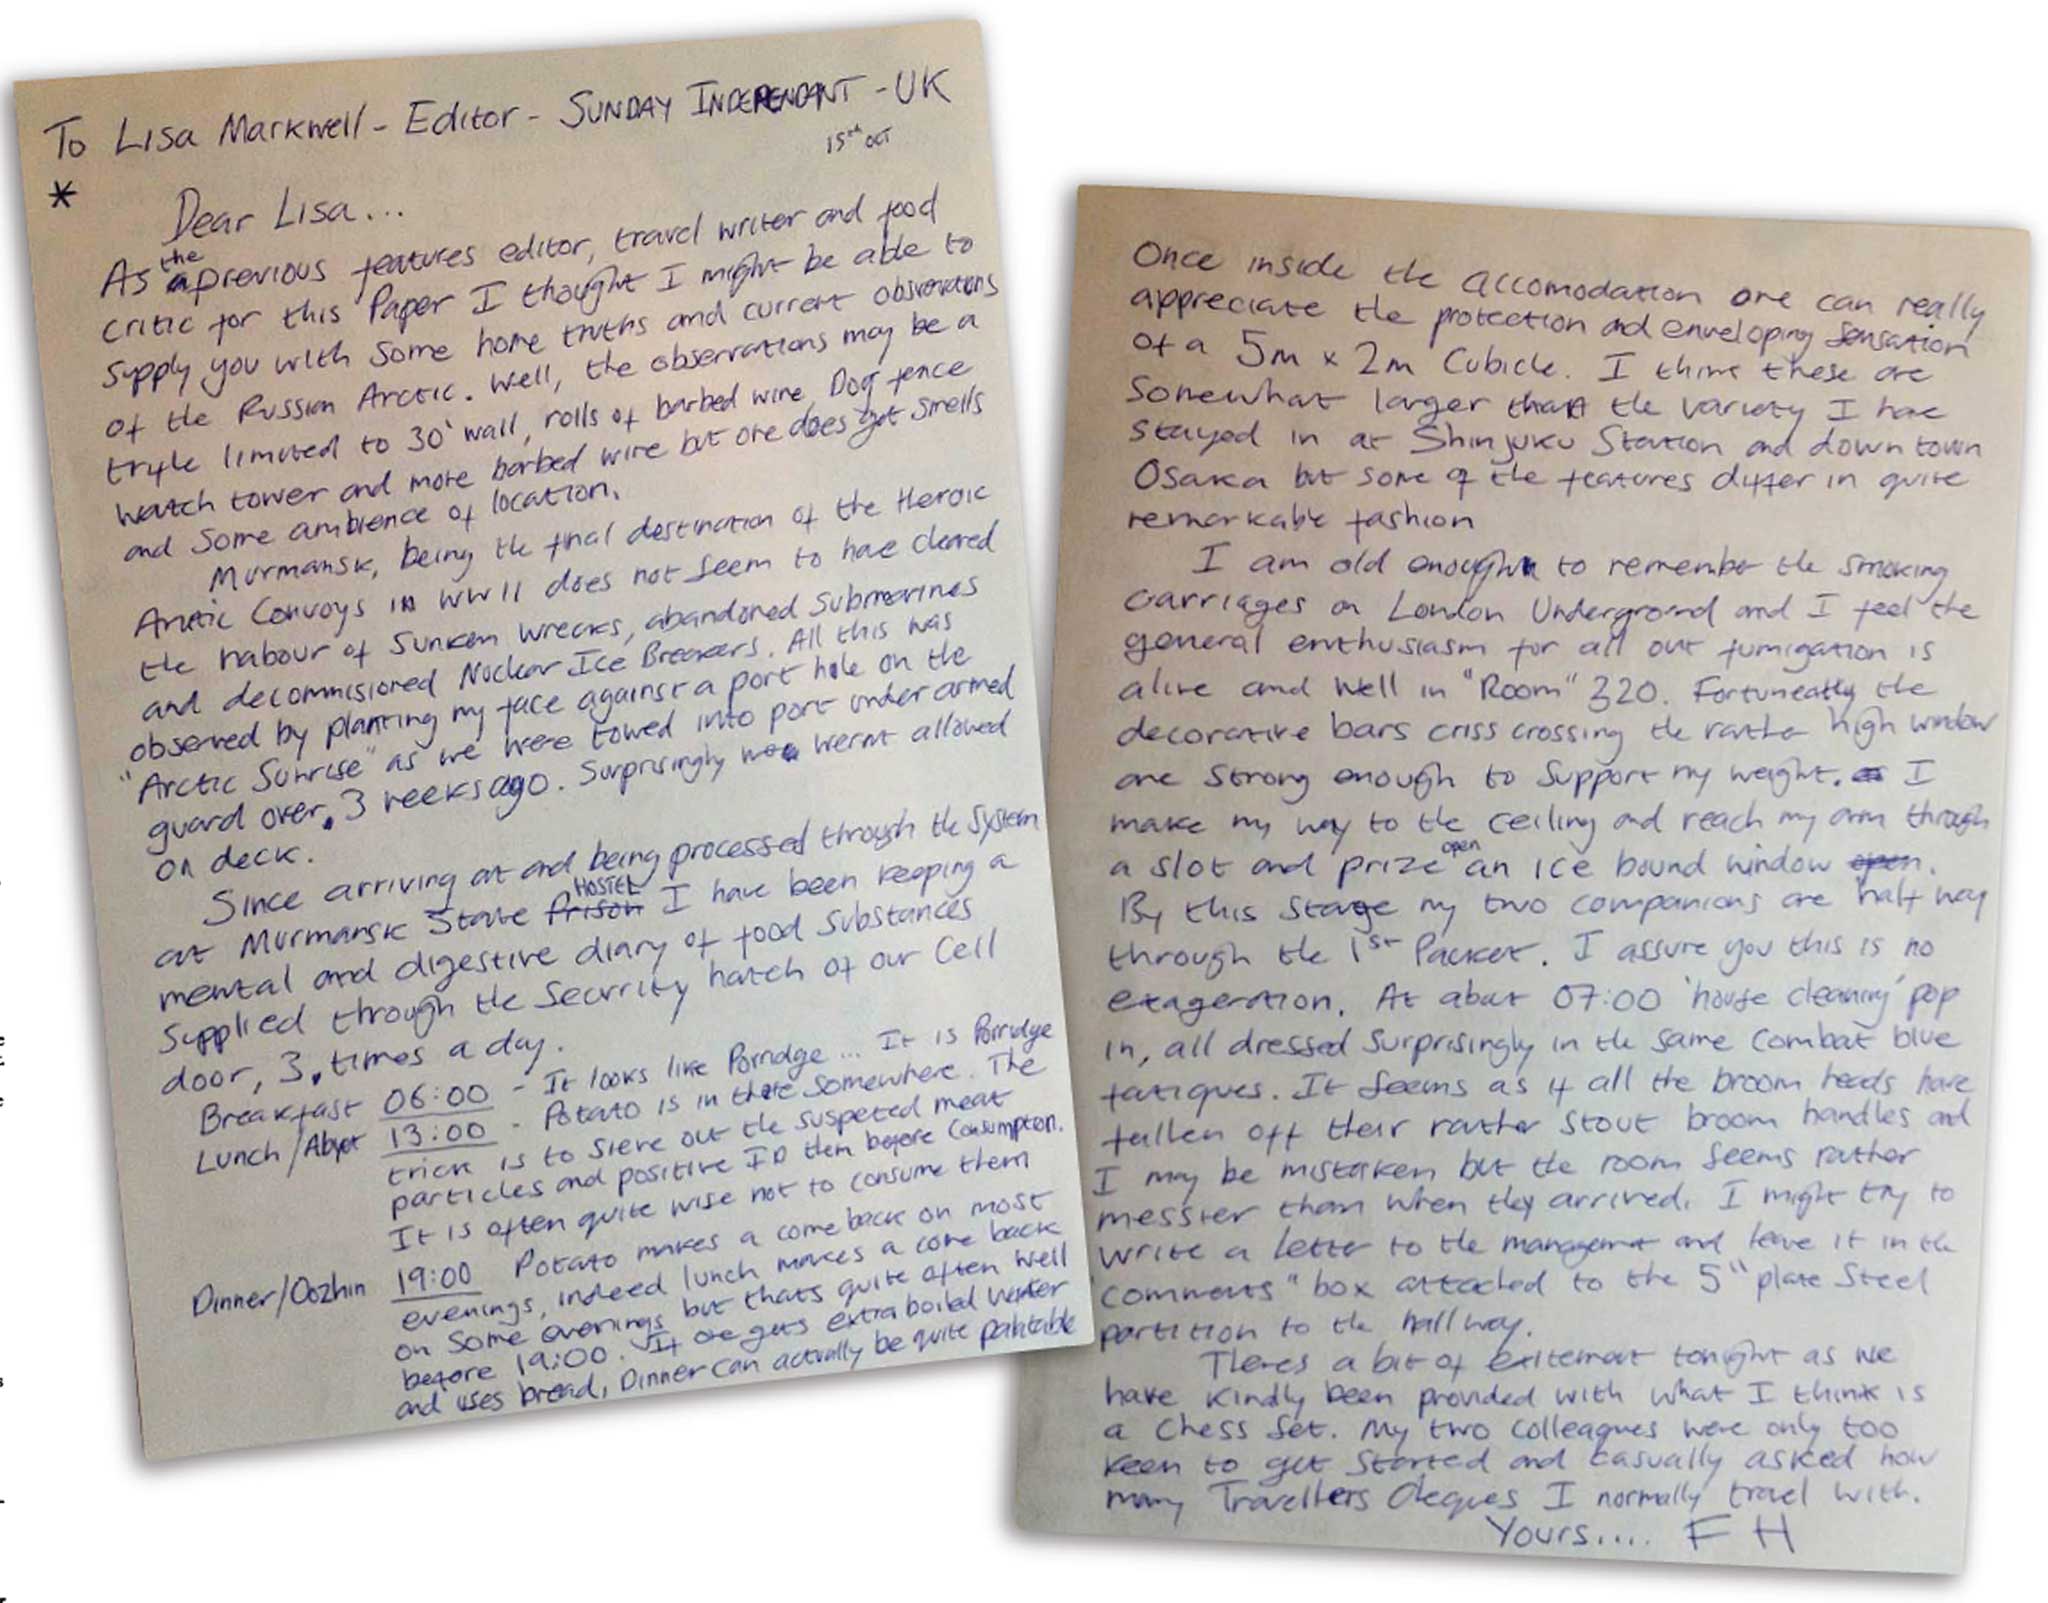 To Lisa Markwell - Editor - SUNDAY INDEPENDANT - UK
15th OCT
*
Dear Lisa...
As the previous features editor, travel writer and food
critic for this Paper I thought I might be able to
supply you with some home truths and current observations
of the Russian Arctic. Well, the observations may be a
trifle limited to 30' wall, rolls of barbed wire, Dog fence
watch tower and more barbed wire but one does get smells
and some ambience of location.
Murmansk, being the final destination of the Heroic
Arctic Convoys in WWII does not seem to have cleared
the habour of sunken wrecks, abandoned submarines
and decommisioned Nuclear Ice Breakers. All this was
observed by planting my face against a port hole on the
"Arctic Sunrise" as we were towed into port under armed
guard over, 3 weeks ago. Surprisingly we wernt allowed
on deck.
Since arriving at and being processed through the system
at Murmansk State prison HOSTEL I have been keeping a
mental and digestive diary of food substances
supplied through the security hatch of our cell
door, 3, times a day.
Breakfast 06:00 - It looks like Porridge ... It is Porridge
Lunch/Abyet 13:00 - Potato is in there somewhere. The
trick is to sieve out the suspeted meat
particles and positive ID them before consumption.
It is often quite wise not to consume them
Dinner/Oozhin 19:00 Potato makes a come back on most
evenings, indeed lunch makes a come back
on some evenings but thats quite often well
before 19:00. If one gets extra boiled water
and uses bread, Dinner can actually be quite palatable
Once inside the accomodation one can really
appreciate the protection and enveloping sensation
of a 5m x 2m Cubicle. I think these are
somewhat larger than the variety I have
stayed in at Shinjuku Station and down town
Osaka but some of the features differ in quite
remarkable fashion
I am old enough to remember the smoking
carriages on London Underground and I feel the
general enthusiasm for all out fumigation is
alive and well in "Room" 320. Fortuneatly the
decorative bars criss crossing the rather high window
are strong enough to support my weight. I
make my way to the ceiling and reach my arm through
a slot and prize open an ice bound window open.
By this stage my two companions are half way
through the 1st Packet. I assure you this is no
exageration. At about 07:00 'house cleaning' pop
in, all dressed surprisingly in the same combat blue
fatiques. It seems as if all the broom heads have
fallen off their rather stout broom handles and
I may be mistaken but the room seems rather
messier than when they arrived. I might try to
write a letter to the managemnt and leave it in the
"comments" box attached to the 5" plate steel
partition to the hallway.
Theres a bit of exitement tonight as we
have kindly been provided with what I think is
a chess set. My two colleagues were only too
keen to get started and casually asked how
many Travellers Cheques I normally travel with.
Yours.... F H